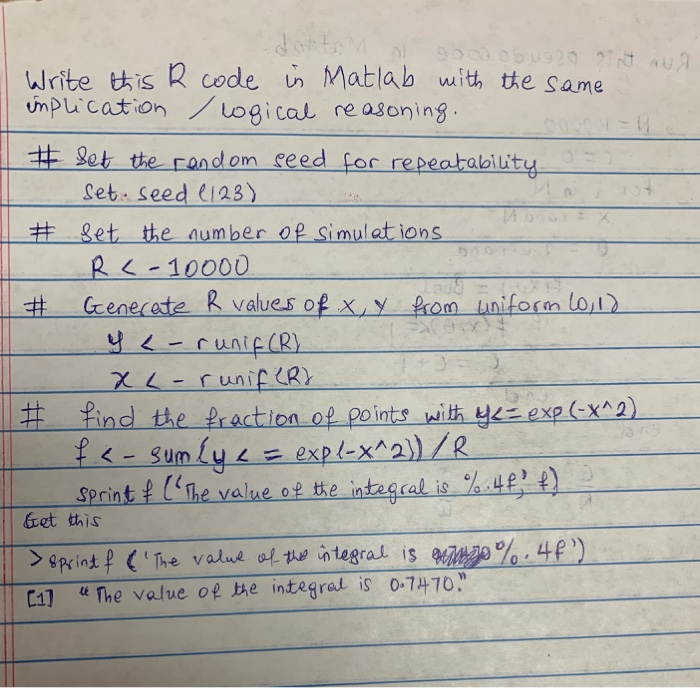 Write this R code in Matlab with the same
implication / logical reasoning.
# Set the random seed for repeatability
Set. seed (123)
# Set the number of simulations
R < - 10000
# Generate R values of x, y from uniform (0,1)
y < - runif(R)
x < - runif(R)
# find the fraction of points with y<= exp(-x^2)
f < - sum(y < = exp(-x^2)) / R
sprintf ("The value of the integral is %.4f", f)
Get this
> sprintf ('The value of the integral is %.4f')
[1] "The value of the integral is 0.7470."